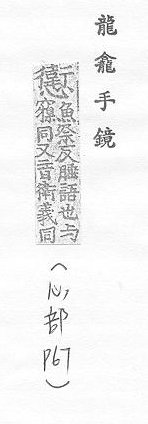 龍龕手鏡
魚祭反睡語也与
寱同又音衛義同
(心部
P67)